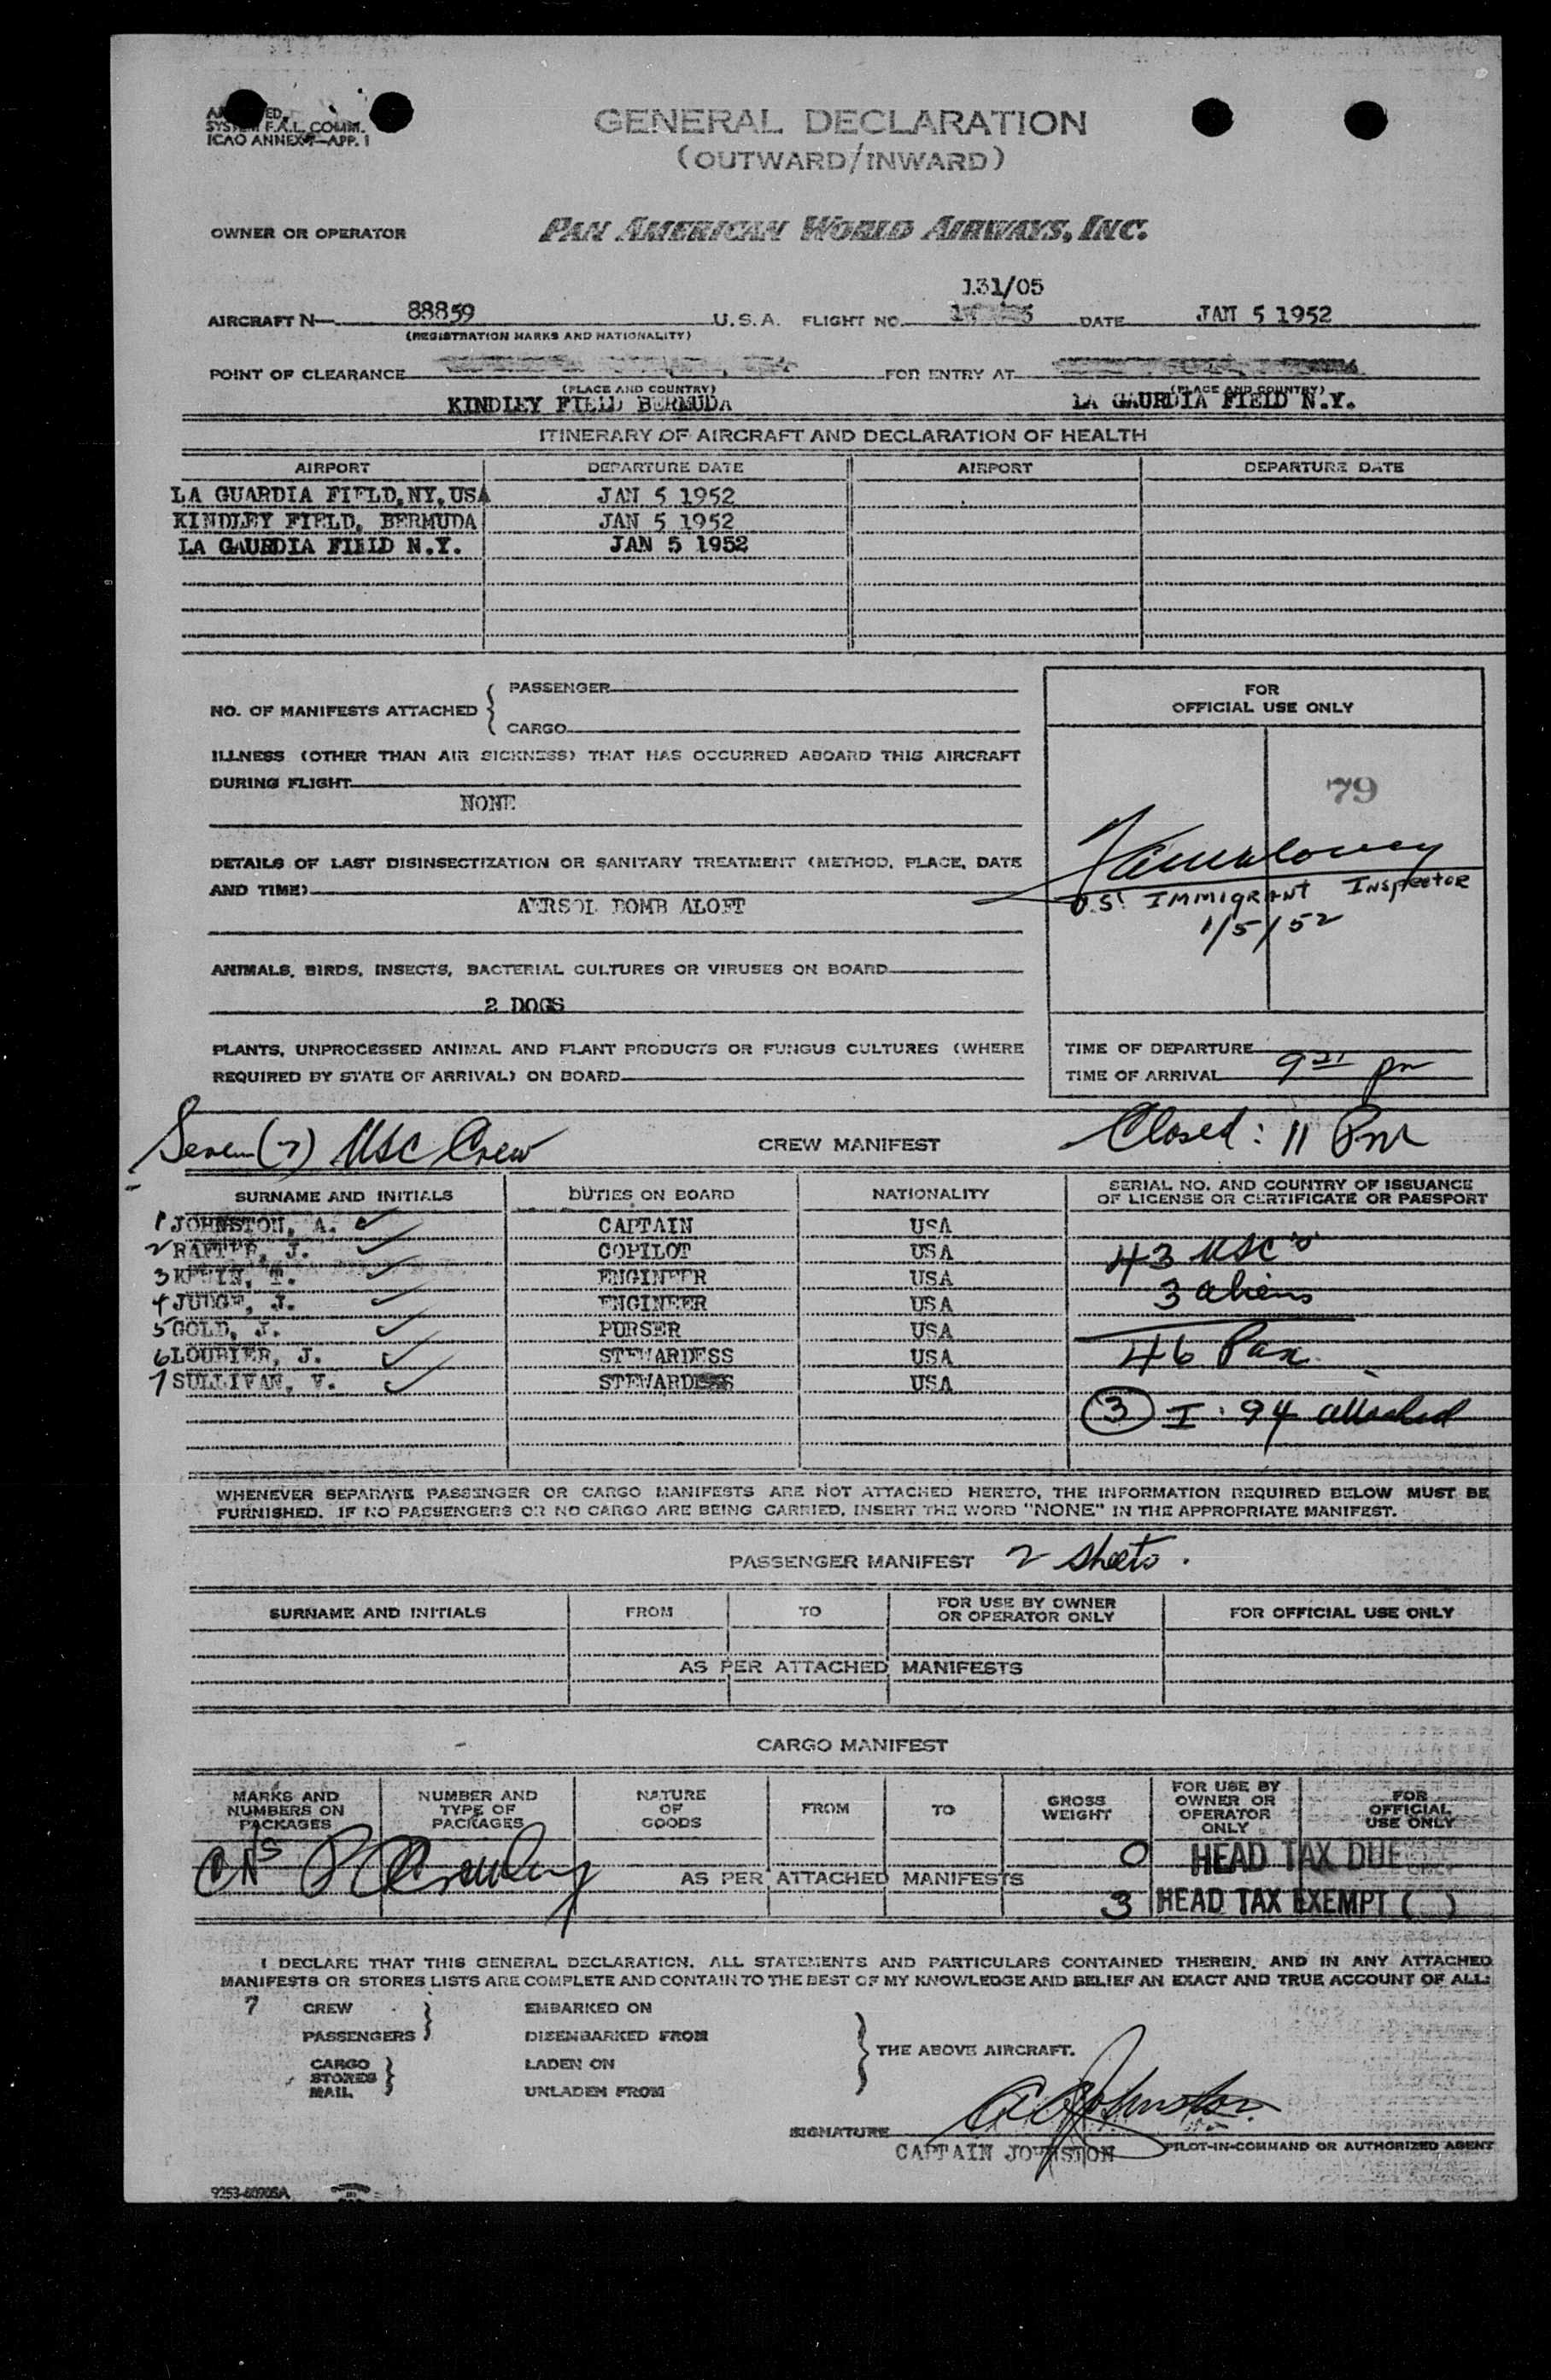 SYSTEM F.A.L. COMM.
ICAO ANNEX 9—APP. 1
GENERAL DECLARATION
(OUTWARD/INWARD)
OWNER OR OPERATOR PAN AMERICAN WORLD AIRWAYS, INC.
131/05
AIRCRAFT N— 88859 U.S.A. FLIGHT NO. DATE JAN 5 1952
(REGISTRATION MARKS AND NATIONALITY)
POINT OF CLEARANCE FOR ENTRY AT
(PLACE AND COUNTRY) (PLACE AND COUNTRY)
KINDLEY FIELD BERMUDA LA GAURDIA FIELD N.Y.
ITINERARY OF AIRCRAFT AND DECLARATION OF HEALTH
AIRPORT DEPARTURE DATE AIRPORT DEPARTURE DATE
LA GUARDIA FIELD,NY,USA JAN 5 1952
KINDLEY FIELD, BERMUDA JAN 5 1952
LA GAURDIA FIELD N.Y. JAN 5 1952
NO. OF MANIFESTS ATTACHED { PASSENGER
CARGO
ILLNESS (OTHER THAN AIR SICKNESS) THAT HAS OCCURRED ABOARD THIS AIRCRAFT
DURING FLIGHT
NONE
DETAILS OF LAST DISINSECTIZATION OR SANITARY TREATMENT (METHOD, PLACE, DATE
AND TIME)
AERSOL BOMB ALOFT
ANIMALS, BIRDS, INSECTS, BACTERIAL CULTURES OR VIRUSES ON BOARD
2 DOGS
PLANTS, UNPROCESSED ANIMAL AND PLANT PRODUCTS OR FUNGUS CULTURES (WHERE
REQUIRED BY STATE OF ARRIVAL) ON BOARD
FOR
OFFICIAL USE ONLY
79
U.S. IMMIGRANT INSPECTOR
1/5/52
TIME OF DEPARTURE
TIME OF ARRIVAL 9 21 pm
Seven (7) USC Crew CREW MANIFEST Closed: 11 Pm
SURNAME AND INITIALS DUTIES ON BOARD NATIONALITY SERIAL NO. AND COUNTRY OF ISSUANCE
OF LICENSE OR CERTIFICATE OR PASSPORT
1 JOHNSTON, A. CAPTAIN USA
2 J. COPILOT USA 43 USC's
3 T. ENGINEER USA
4 JUDGE, J. ENGINEER USA 3 aliens
5 GOLD, J. PURSER USA
6 LOUBIER, J. STEWARDESS USA 46 Pax.
7 SULLIVAN, V. STEWARDESS USA
3 I-94 attached
WHENEVER SEPARATE PASSENGER OR CARGO MANIFESTS ARE NOT ATTACHED HERETO, THE INFORMATION REQUIRED BELOW MUST BE
FURNISHED. IF NO PASSENGERS OR NO CARGO ARE BEING CARRIED, INSERT THE WORD "NONE" IN THE APPROPRIATE MANIFEST.
PASSENGER MANIFEST 2 sheets.
SURNAME AND INITIALS FROM TO FOR USE BY OWNER
OR OPERATOR ONLY FOR OFFICIAL USE ONLY
AS PER ATTACHED MANIFESTS
CARGO MANIFEST
MARKS AND
NUMBERS ON
PACKAGES
NUMBER AND
TYPE OF
PACKAGES
NATURE
OF
GOODS
FROM
TO
GROSS
WEIGHT
FOR USE BY
OWNER OR
OPERATOR
ONLY
FOR
OFFICIAL
USE ONLY
0 HEAD TAX DUE
AS PER ATTACHED MANIFESTS
3 HEAD TAX EXEMPT ( )
I DECLARE THAT THIS GENERAL DECLARATION, ALL STATEMENTS AND PARTICULARS CONTAINED THEREIN, AND IN ANY ATTACHED
MANIFESTS OR STORES LISTS ARE COMPLETE AND CONTAIN TO THE BEST OF MY KNOWLEDGE AND BELIEF AN EXACT AND TRUE ACCOUNT OF ALL:
7 CREW EMBARKED ON
PASSENGERS DISEMBARKED FROM
THE ABOVE AIRCRAFT.
CARGO LADEN ON
STORES
MAIL UNLADEN FROM
SIGNATURE A Johnston
CAPTAIN JOHNSTON PILOT-IN-COMMAND OR AUTHORIZED AGENT